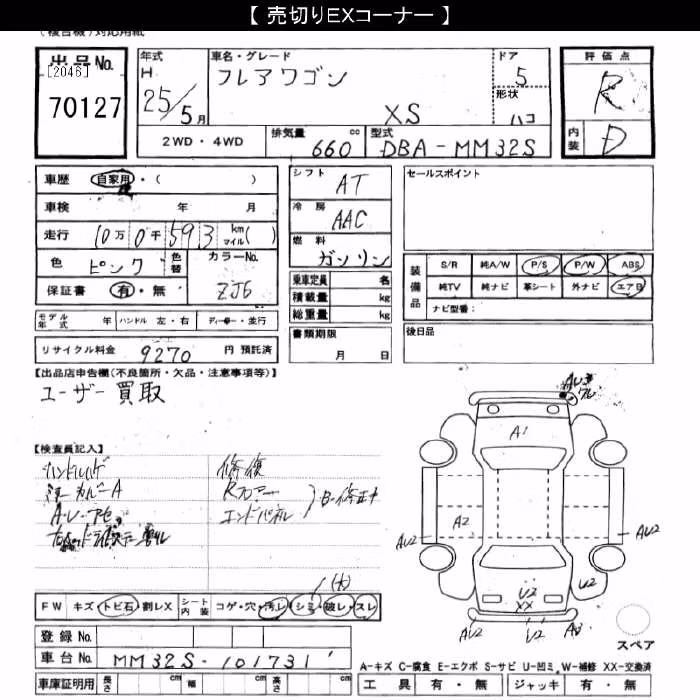 【 売切りEXコーナー 】
(複合機)対応用紙
出品No.
[2046]
70127
年式
H
25/5月
車名・グレード
フレアワゴン
XS
ドア
5
形状
ハコ
評価点
R
内装
D
2WD・4WD
排気量 660 cc
型式 DBA-MM32S
車歴 自家用・( )
車検 年 月
走行 10万0千593 km マイル( )
色 ピンク 色替
カラーNo. ZJ6
保証書 有・無
モデル年式 年 ハンドル 左・右 ディーラー・並行
リサイクル料金 9270 円 預託済
シフト AT
冷房 AAC
燃料 ガソリン
乗車定員 名
積載量 kg
総重量 kg
書類期限
月 日
セールスポイント
装備品
S/R 純A/W P/S P/W ABS
純TV 純ナビ 革シート 外ナビ エアB
ナビ型番:
後日品
【出品店申告欄(不良箇所・欠品・注意事項等)】
ユーザー買取
【検査員記入】
ハンドルハゲ
カバーA
修復
Rフロアー
エンドパネル
B・修正キ
A1
A2
AU2
AU2
U2
U2
XX
U2
AU2
U2
A3
(大)
FW キズ・トビ石・割レX シート内装 コゲ・穴・汚レ・シミ・破レ・スレ
スペア
登録No.
車台No. MM32S-101731
車庫証明用 長さ cm 幅 cm 高さ cm
A-キズ C-腐食 E-エクボ S-サビ U-凹ミ W-補修 XX-交換済
工具 有・無 ジャッキ 有・無